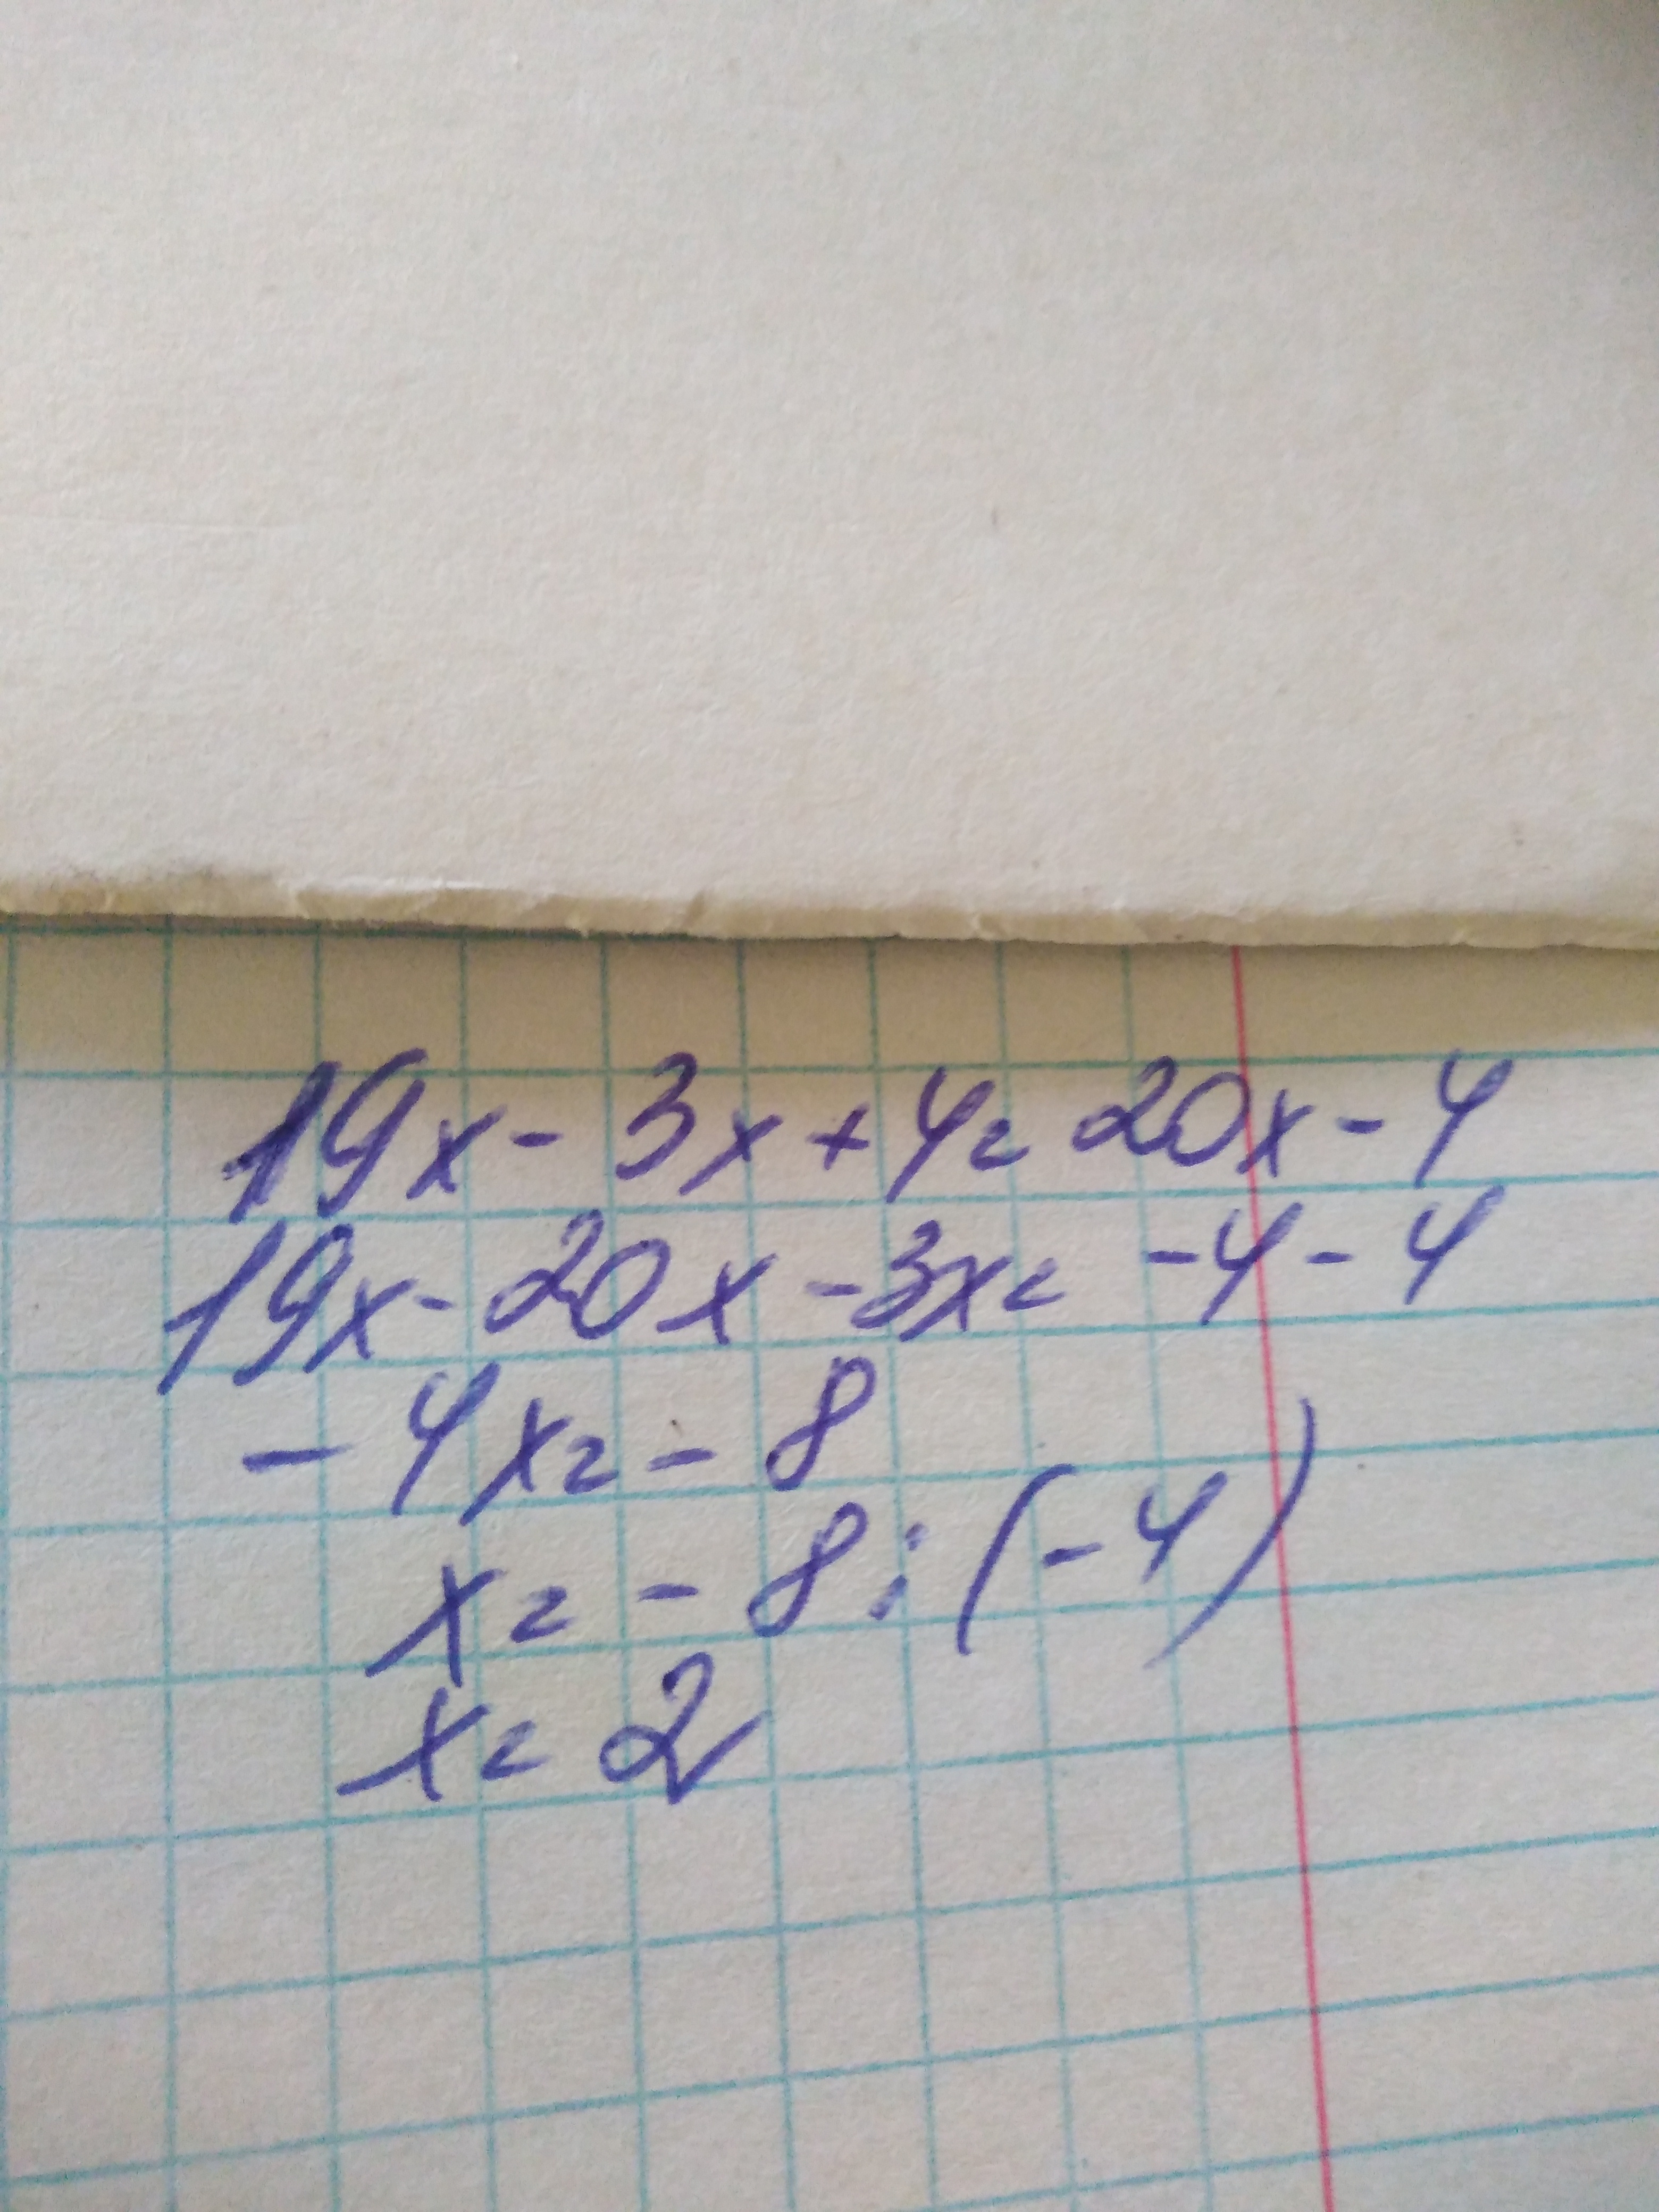 19x - 3x + 4 = 20x - 4
19x - 20x - 3x = -4 - 4
-4x = -8
x = -8 : (-4)
x = 2